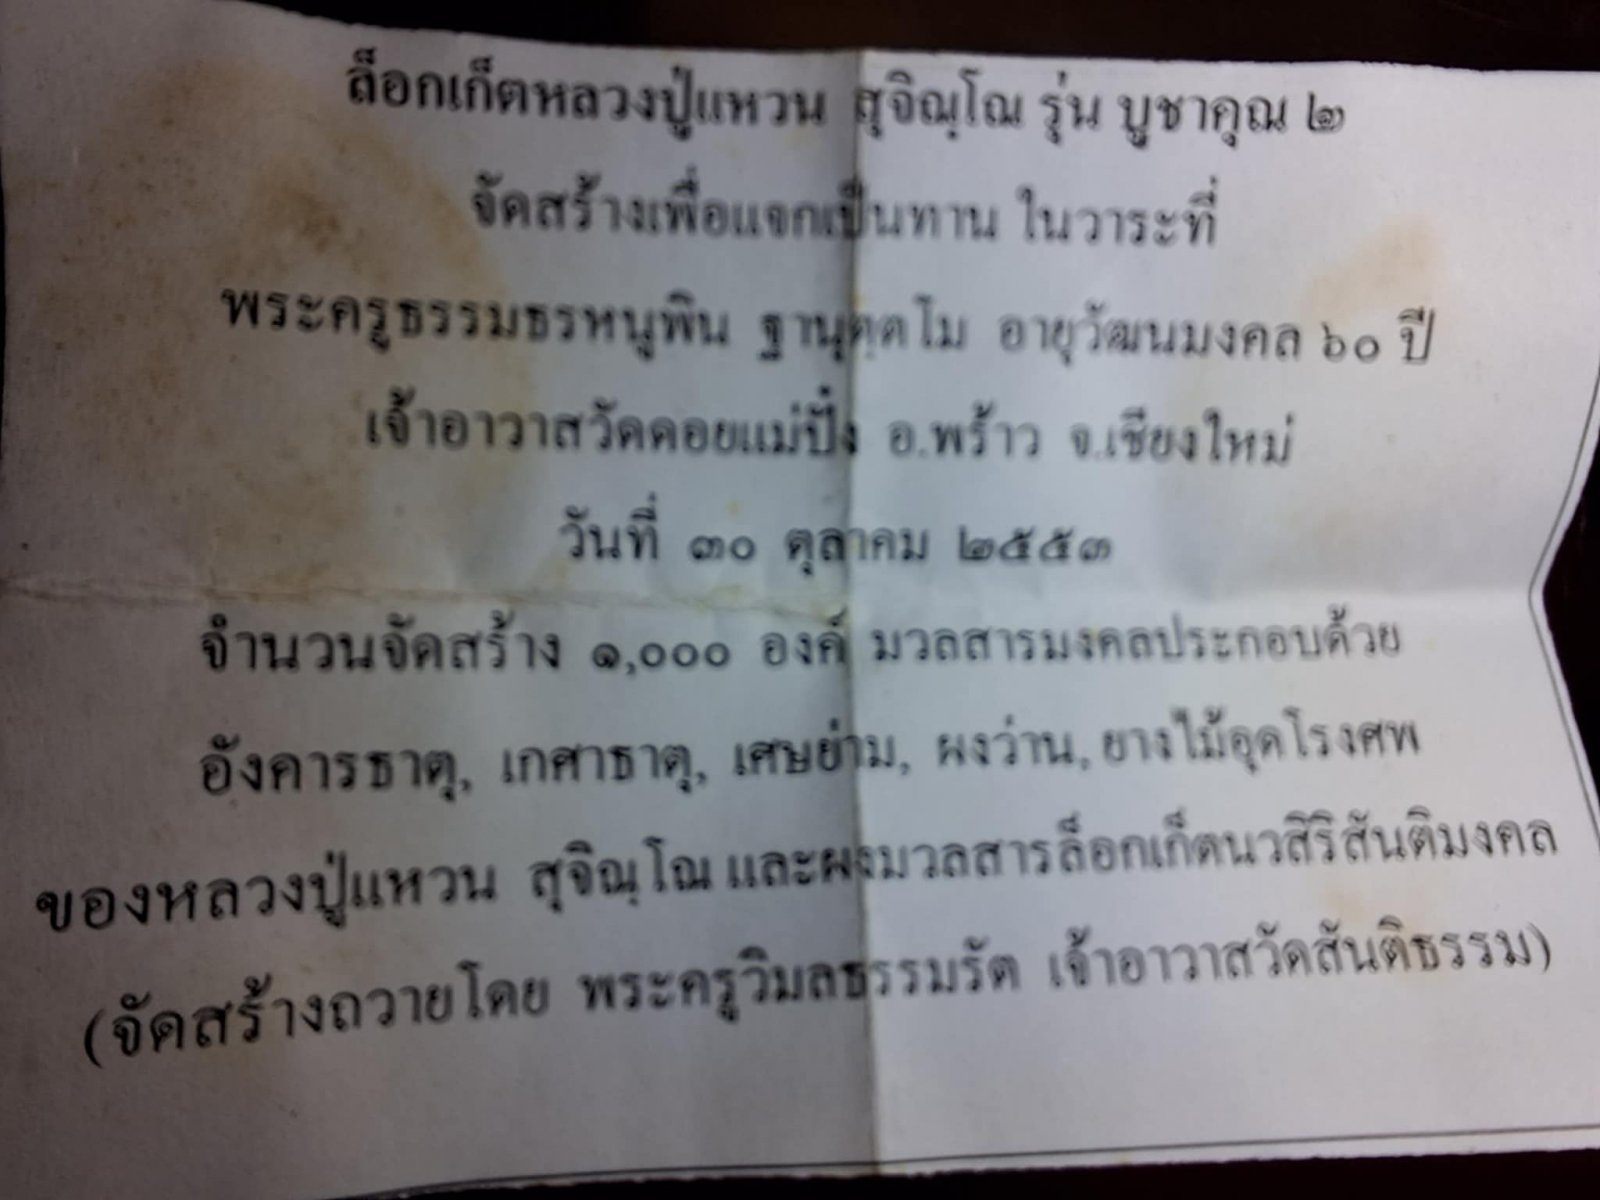 ล็อกเก็ตหลวงปู่แหวน สุจิณฺโณ รุ่น บูชาคุณ ๒
จัดสร้างเพื่อแจกเป็นทาน ในวาระที่
พระครูธรรมธรหนูพิน ฐานุตฺตโม อายุวัฒนมงคล ๖๐ ปี
เจ้าอาวาสวัดดอยแม่ปั๋ง อ.พร้าว จ.เชียงใหม่
วันที่ ๓๐ ตุลาคม ๒๕๕๓
จำนวนจัดสร้าง ๑,๐๐๐ องค์ มวลสารมงคลประกอบด้วย
อังคารธาตุ, เกศาธาตุ, เศษย่าม, ผงว่าน, ยางไม้อุดโรงศพ
ของหลวงปู่แหวน สุจิณฺโณ และผงมวลสารล็อกเก็ตนวสิริสันติมงคล
(จัดสร้างถวายโดย พระครูวิมลธรรมรัต เจ้าอาวาสวัดสันติธรรม)